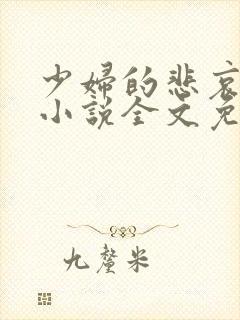 少婦的悲哀
小說全文免
九釐米